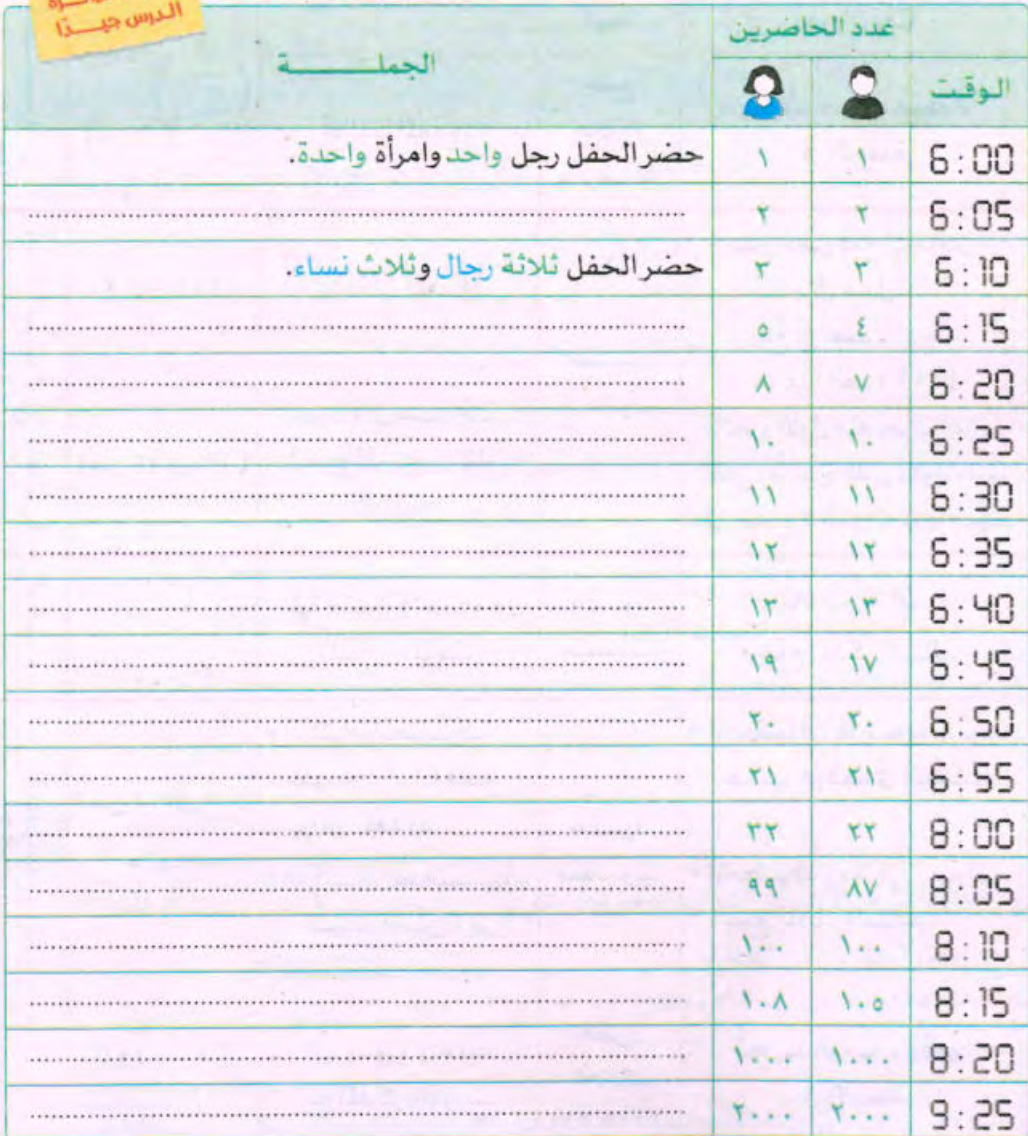 الدرس جيـدًا
عدد الحاضرين
الوقت الجملــــــة
6:00 ١ ١ حضر الحفل رجل واحد وامرأة واحدة.
6:05 ٢ ٢
6:10 ٣ ٣ حضر الحفل ثلاثة رجال وثلاث نساء.
6:15 ٤ ٥
6:20 ٧ ٨
6:25 ١٠ ١٠
6:30 ١١ ١١
6:35 ١٢ ١٢
6:40 ١٣ ١٣
6:45 ١٧ ١٩
6:50 ٢٠ ٢٠
6:55 ٢١ ٢١
8:00 ٢٢ ٣٢
8:05 ٨٧ ٩٩
8:10 ١٠٠ ١٠٠
8:15 ١٠٥ ١٠٨
8:20 ١٠٠٠ ١٠٠٠
9:25 ٢٠٠٠ ٣٠٠٠